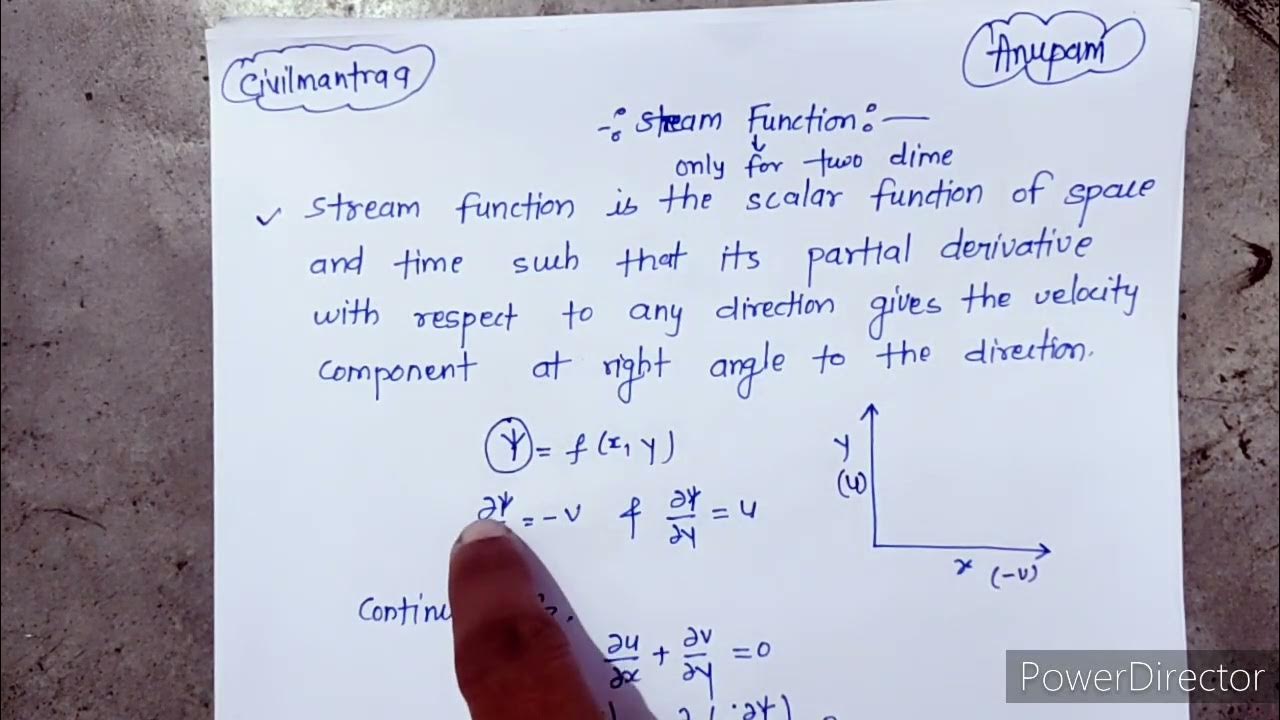 Civilmantra9
Anupam
-: Stream Function :-
only for two dime
✓ Stream function is the scalar function of space
and time such that its partial derivative
with respect to any direction gives the velocity
component at right angle to the direction.
ψ = f(x, y)
∂ψ = -v & ∂ψ/∂y = u
y
(u)
x (-v)
∂u/∂x + ∂v/∂y = 0
PowerDirector